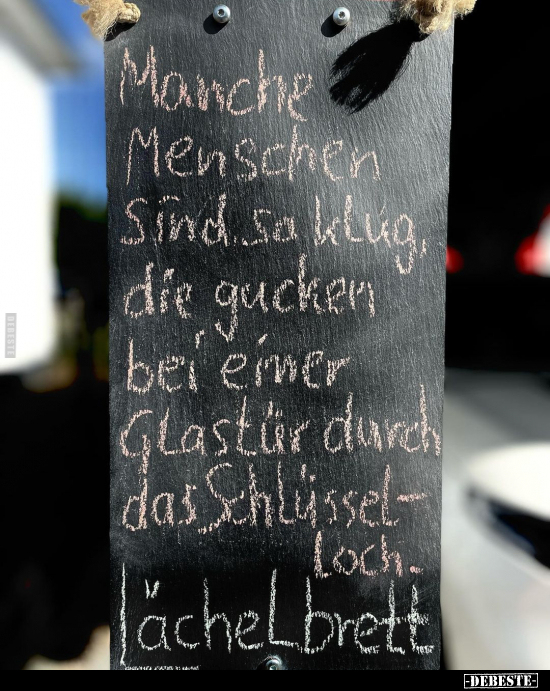 Manche
Menschen
sind so klug,
die gucken
bei einer
Glastür durch
das Schlüssel-
Loch.
LächeLbrett
DEBESTE
-DEBESTE-